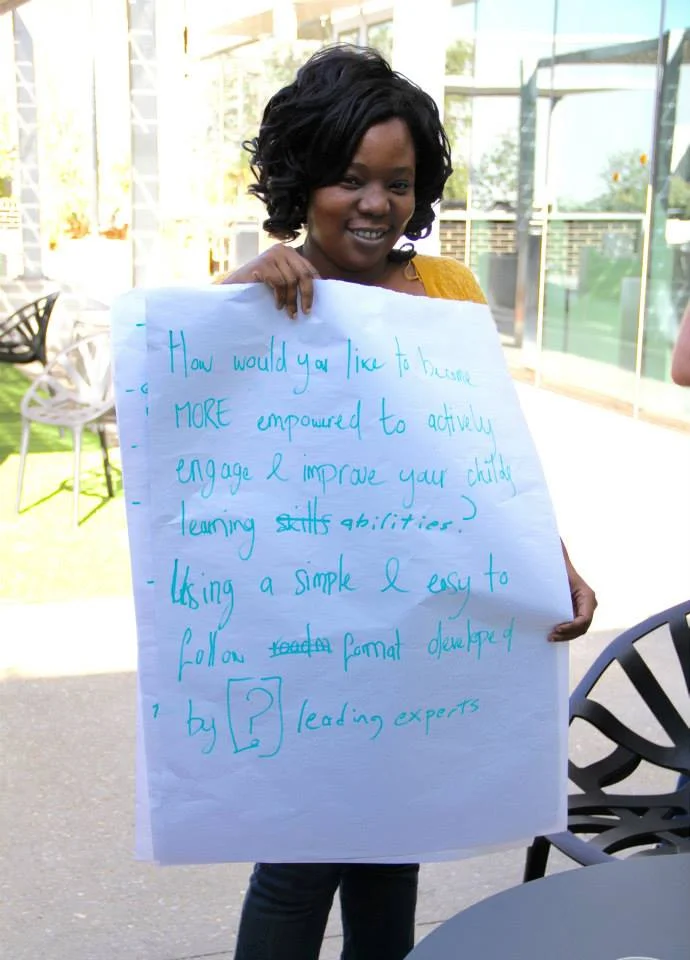 How would you like to become
MORE empowered to actively
engage & improve your childs
learning skills abilities?
- Using a simple & easy to
follow format developed
by [?] leading experts